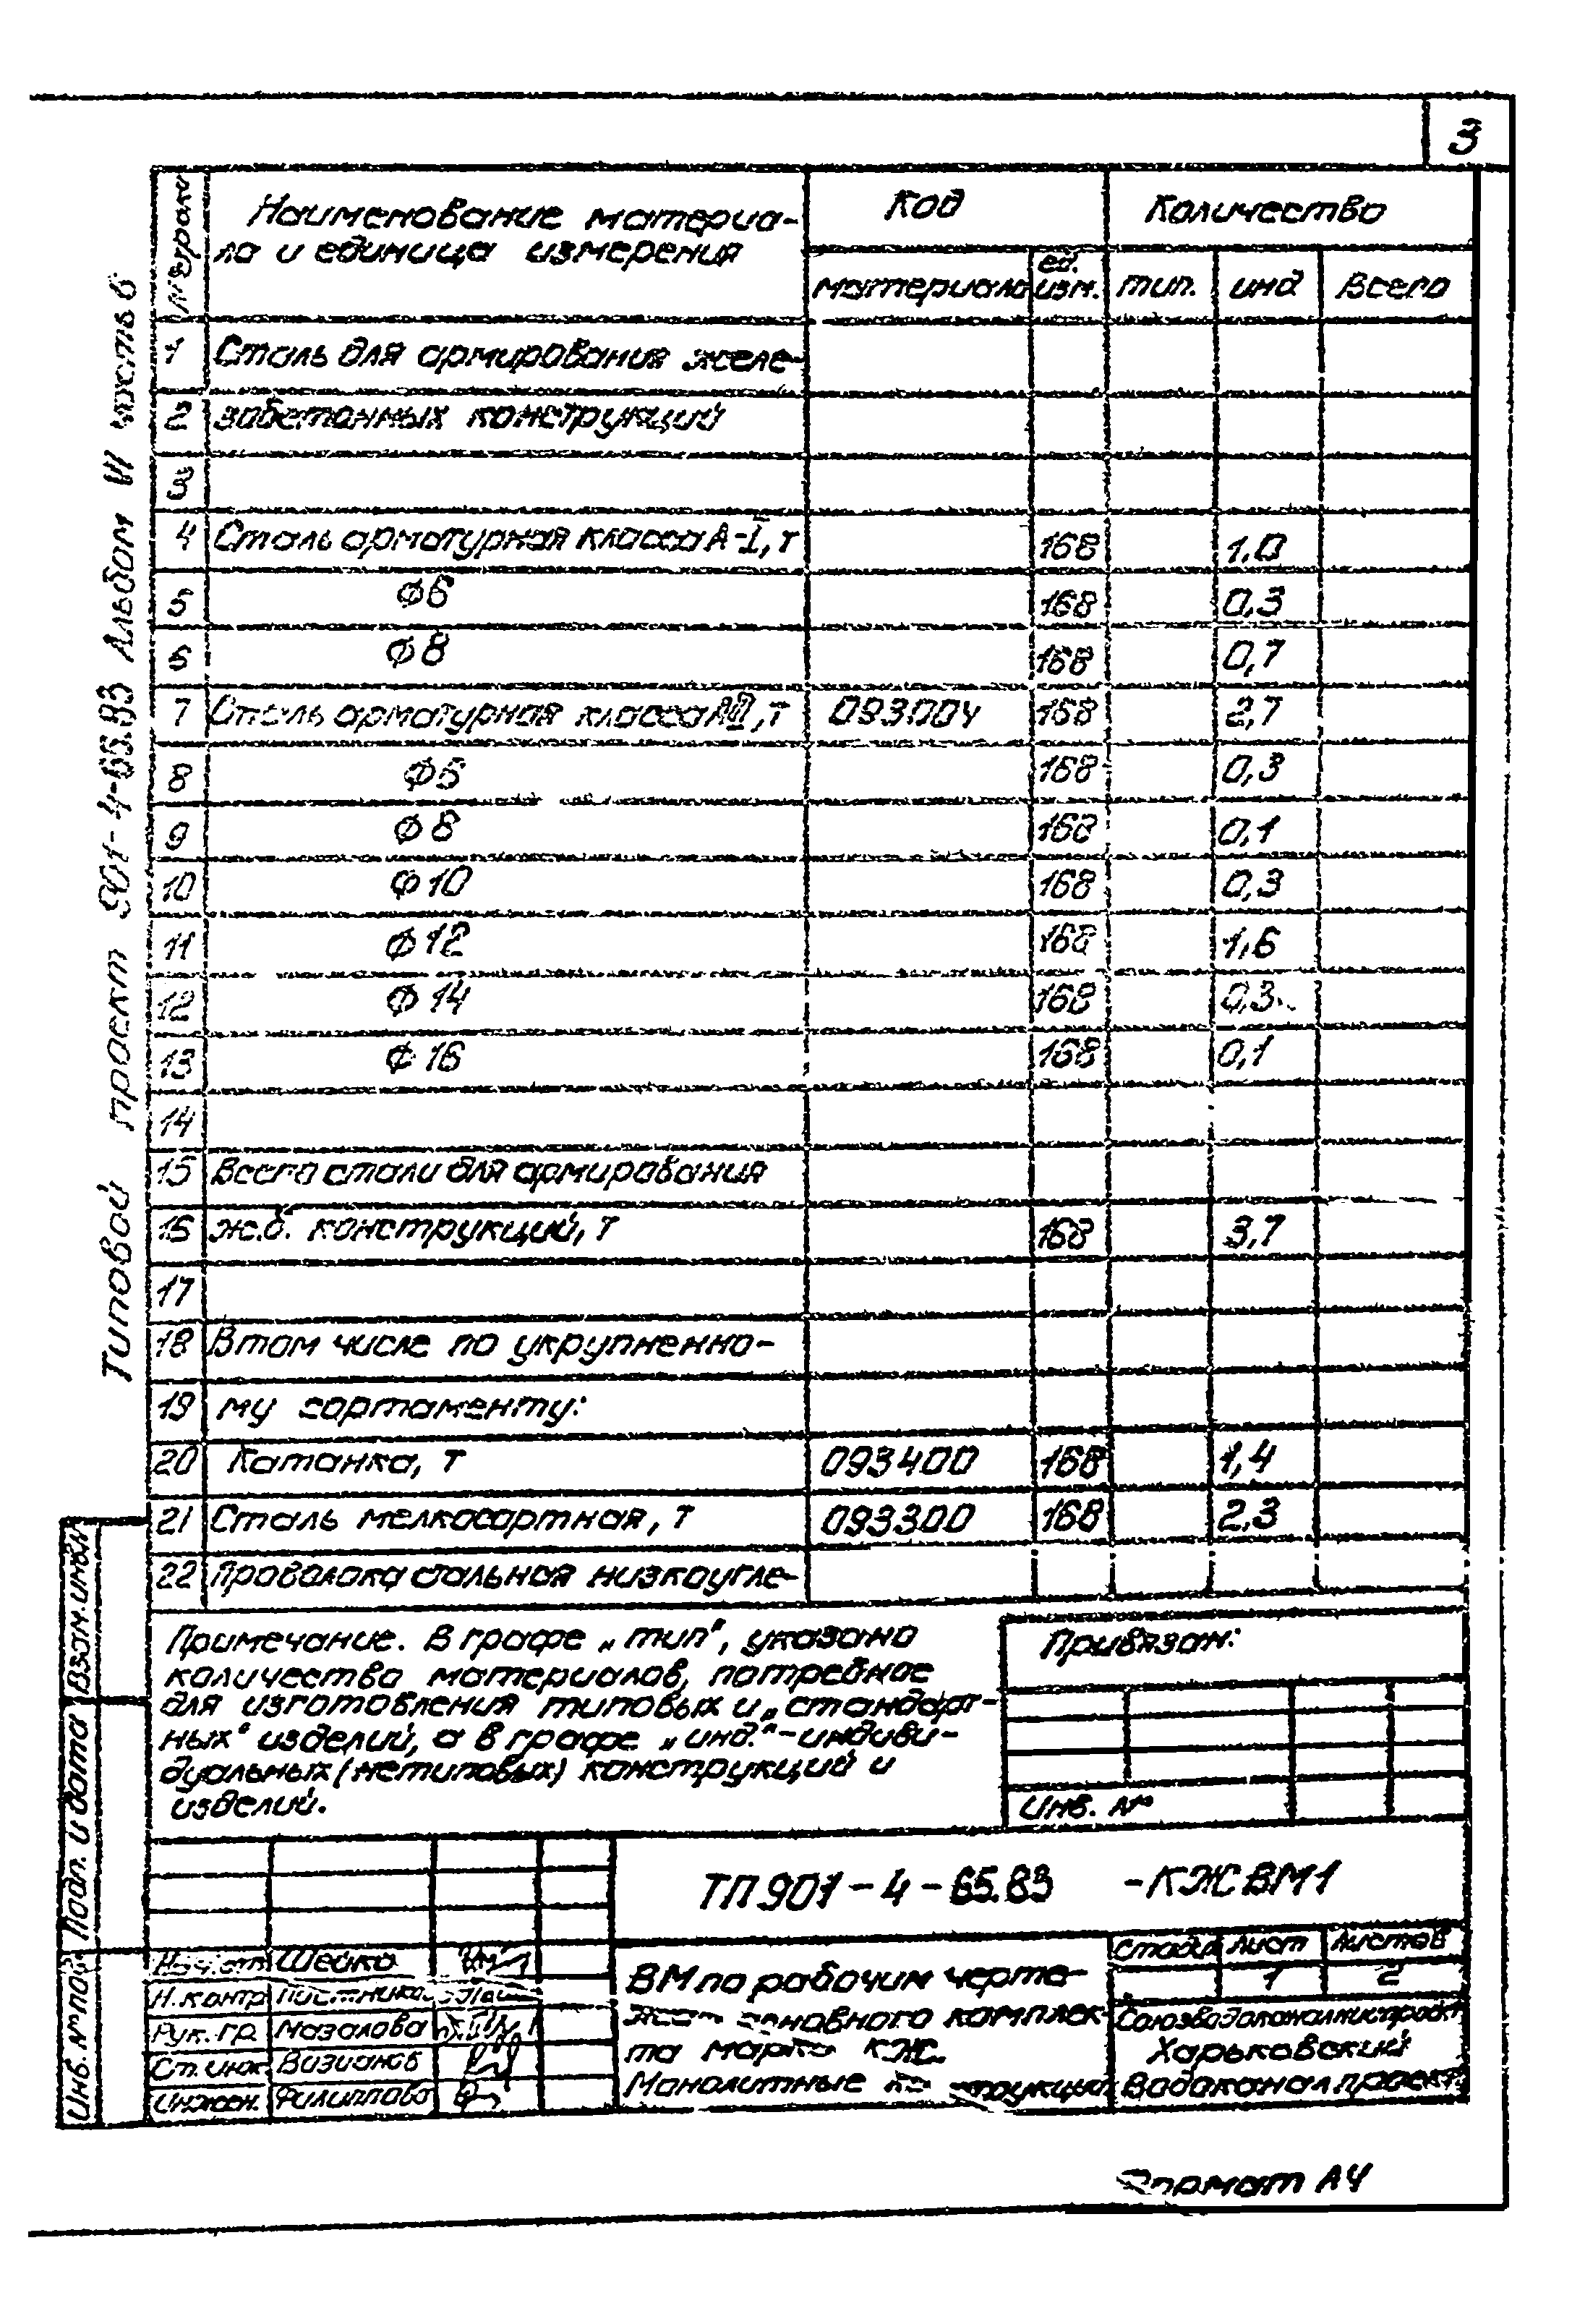 3
№ строки
Наименование материа-
ла и единица измерения
Код
Количество
материала
ед.
изм.
тип.
инд
Всего
1 Сталь для армирования желе-
2 забетонных конструкций
3
4 Сталь арматурная класса А-I, т 168 1.0
5 Ф6 168 0,3
6 Ф8 168 0,7
7 Сталь арматурная класса АIII, т 093004 168 2,7
8 Ф6 168 0,3
9 Ф8 168 0,1
10 Ф10 168 0,3
11 Ф12 168 1,6
12 Ф14 168 0,3
13 Ф16 168 0,1
14
15 Всего стали для армирования
16 ж.б. конструкций, т 168 3,7
17
18 В том числе по укрупненно-
19 му сортаменту:
20 Катанка, т 093400 168 1,4
21 Сталь мелкосортная, т 093300 168 2,3
22 Проволока стальная низкоугле-
Примечание. В графе „тип", указано
количество материалов, потребное
для изготовления типовых и „стандарт-
ных" изделий, а в графе „инд."-индиви-
дуальных (нетиповых) конструкций и
изделий.
Привязан:
Инв. №
ТП 901-4-65.83 -КЖ ВМ1
Нач. отд. Шейко
Н. контр.
Рук. гр. Мазалова
Ст. инж. Визианов
Инжен. Филиппова
ВМ по рабочим черте-
жам основного комплек-
та марки КЖ.
Монолитные конструкции
Стадия Лист Листов
1 2
Союзводоканалниипроект
Харьковский
Водоканалпроект
Формат А4
Типовой проект 901-4-65.83 Альбом VI часть 6
Инв. № подл. Подп. и дата Взам. инв. №